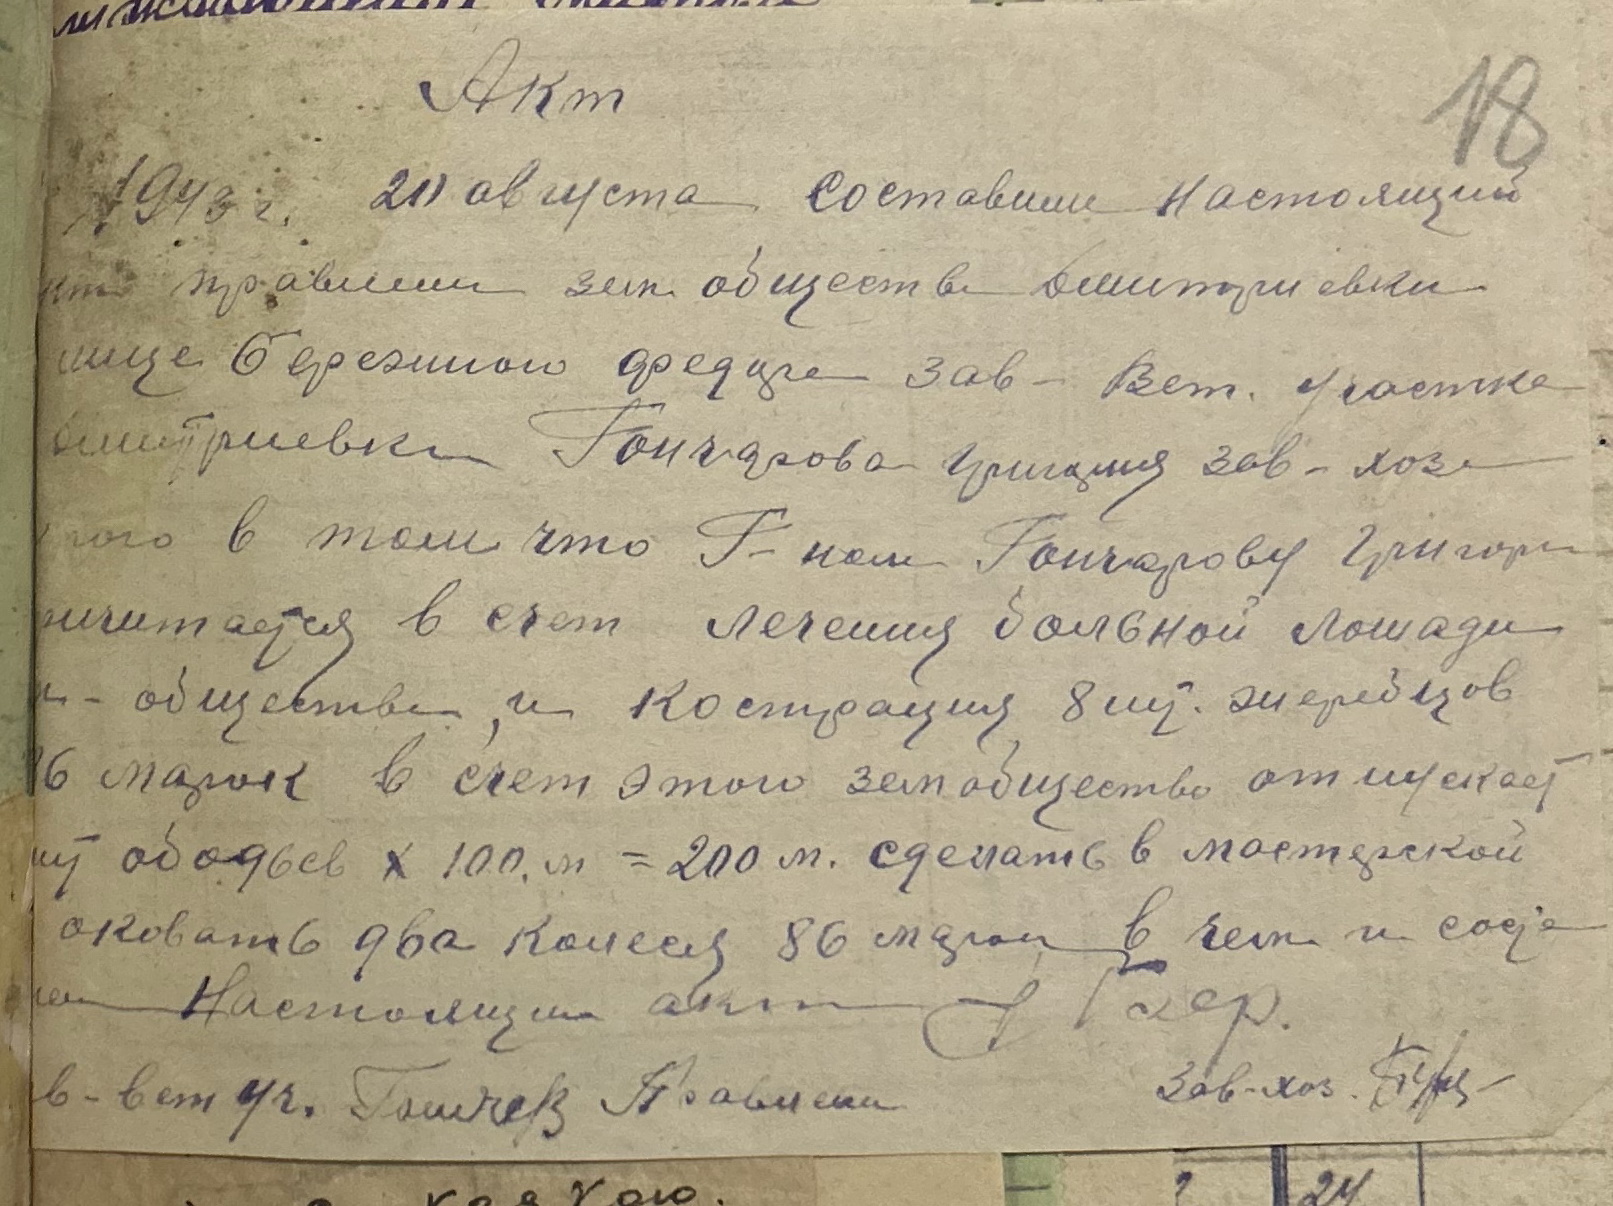 18
Акт
1943 г. 20 августа составили настоящий
правлении зем общества Дмитриевки
лице Бережного Федора Зав- Вет. участка
Дмитриевки Гончарова Григория зав-хоза
в том что Г-ном Гончарову Григори
ричитается в счет лечения больной лошади
общества, и кострация 8 шт. жеребцов
86 марок в счет этого земобщество отпускает
шт ободьев х 100 м = 200 м. сделать в мастерской
оковать два колеса 86 марок в чем и соста
настоящий акт
в-вет уч. Правлени Зав-хоз.
24